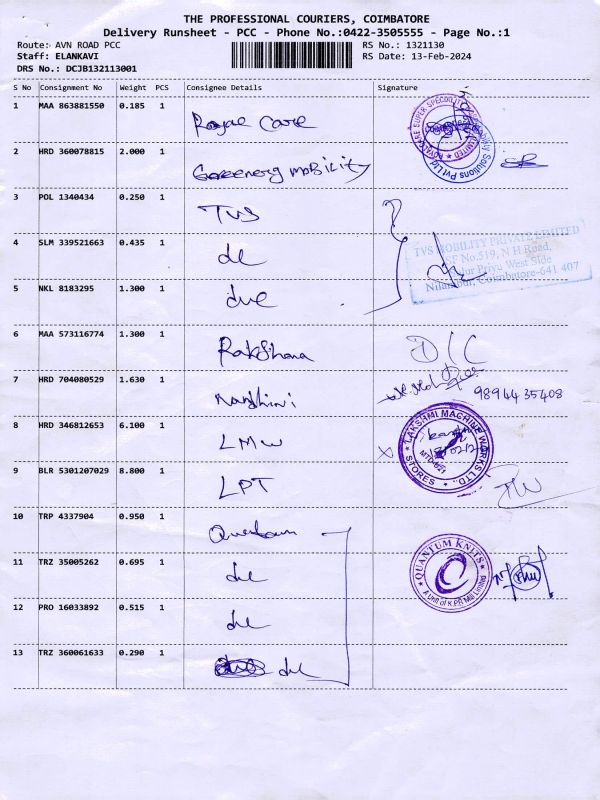 THE PROFESSIONAL COURIERS, COIMBATORE
Delivery Runsheet - PCC - Phone No.:0422-3505555 - Page No.:1
Route: AVN ROAD PCC RS No.: 1321130
Staff: ELANKAVI RS Date: 13-Feb-2024
DRS No.: DCJB132113001
S No Consignment No Weight PCS Consignee Details Signature
1 MAA 863881550 0.185 1 Royal Care
2 HRD 360078815 2.000 1 Greenerg mobility
3 POL 1340434 0.250 1 TVS
TVS MOBILITY PRIVATE LIMITED
SF No.519, N H Road,
West Side
Nilambur, Coimbatore-641 407
4 SLM 339521663 0.435 1 do
5 NKL 8183295 1.300 1 due
6 MAA 573116774 1.300 1 Rakshana D/C
7 HRD 704080529 1.630 1 Nandhini 9894435408
8 HRD 346812653 6.100 1 LMW
LAKSHMI MACHINE WORKS LTD.
STORES
9 BLR 5301207029 8.800 1 LPT
10 TRP 4337904 0.950 1 Quantum
QUANTUM KNITS
A Unit of K.P.R Mill Limited
11 TRZ 35005262 0.695 1 do
12 PRO 16033892 0.515 1 do
13 TRZ 360061633 0.290 1 do